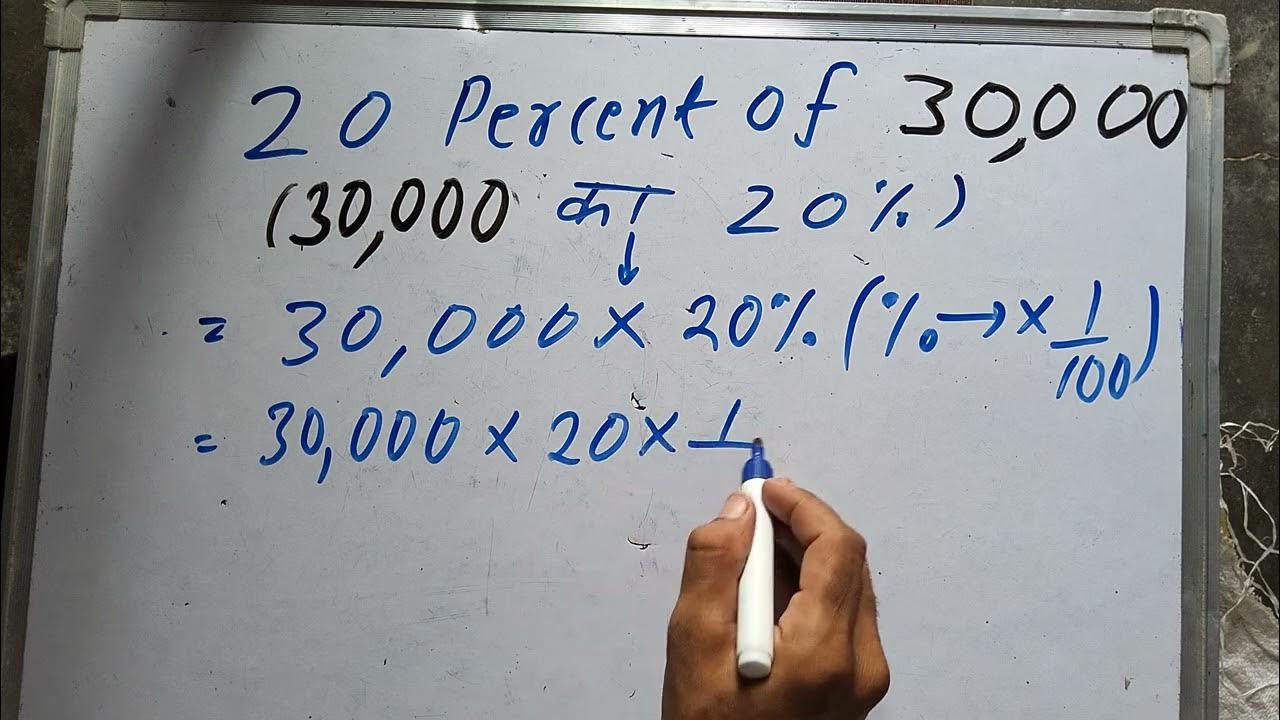 20 Percent of 30,000
(30,000 का 20%)
↓
= 30,000 × 20% (% → × 1/100)
= 30,000 × 20 × 1/